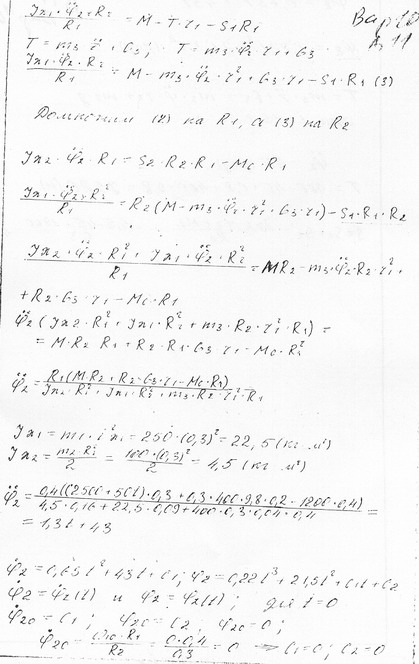 Jx₁·φ̈₂·R₂/R₁ = M - T·r₁ - S₁R₁
Вар
T = m₃ z̈ + G₃; T = m₃·φ̈₂·r₁ + G₃
11
Jx₁·φ̈₂·R₂/R₁ = M - m₃·φ̈₂·r₁² + G₃·r₁ - S₁·R₁ (3)
Домножим (2) на R₁, а (3) на R₂
Jx₂·φ̈₂·R₁ = S₂·R₂·R₁ - Mc·R₁
Jx₁·φ̈₂·R₂²/R₁ = R₂(M - m₃·φ̈₂·r₁² + G₃·r₁) - S₁·R₁·R₂
Jx₂·φ̈₂·R₁² + Jx₁·φ̈₂·R₂²/R₁ = MR₂ - m₃·φ̈₂·R₂·r₁² +
+ R₂·G₃·r₁ - Mc·R₁
φ̈₂(Jx₂·R₁² + Jx₁·R₂² + m₃·R₂·r₁²·R₁) =
= M·R₂·R₁ + R₂·R₁·G₃·r₁ - Mc·R₁²
φ̈₂ = R₁(M·R₂ + R₂·G₃·r₁ - Mc·R₁)/Jx₂·R₁² + Jx₁·R₂² + m₃·R₂·r₁²·R₁
Jx₁ = m₁·i²x₁ = 250·(0,3)² = 22,5 (кг·м²)
Jx₂ = m₂·R₂²/2 = 100·(0,3)²/2 = 4,5 (кг·м²)
φ̈₂ = 0,4((2500+50t)·0,3 + 0,3·400·9,8·0,2 - 1200·0,4)/4,5·0,16 + 22,5·0,09 + 400·0,3·0,04·0,4 =
= 1,3t + 43
φ̇₂ = 0,65t² + 43t + C₁; φ₂ = 0,22t³ + 21,5t² + C₁t + C₂
φ̇₂ = φ̇₂(t) и φ₂ = φ₂(t); для t=0
φ̇₂₀ = C₁; φ₂₀ = C₂ φ₂₀ = 0;
φ̇₂₀ = ω₁₀·R₁/R₂ = 0·0,4/0,3 = 0 ⇒ C₁=0; C₂=0